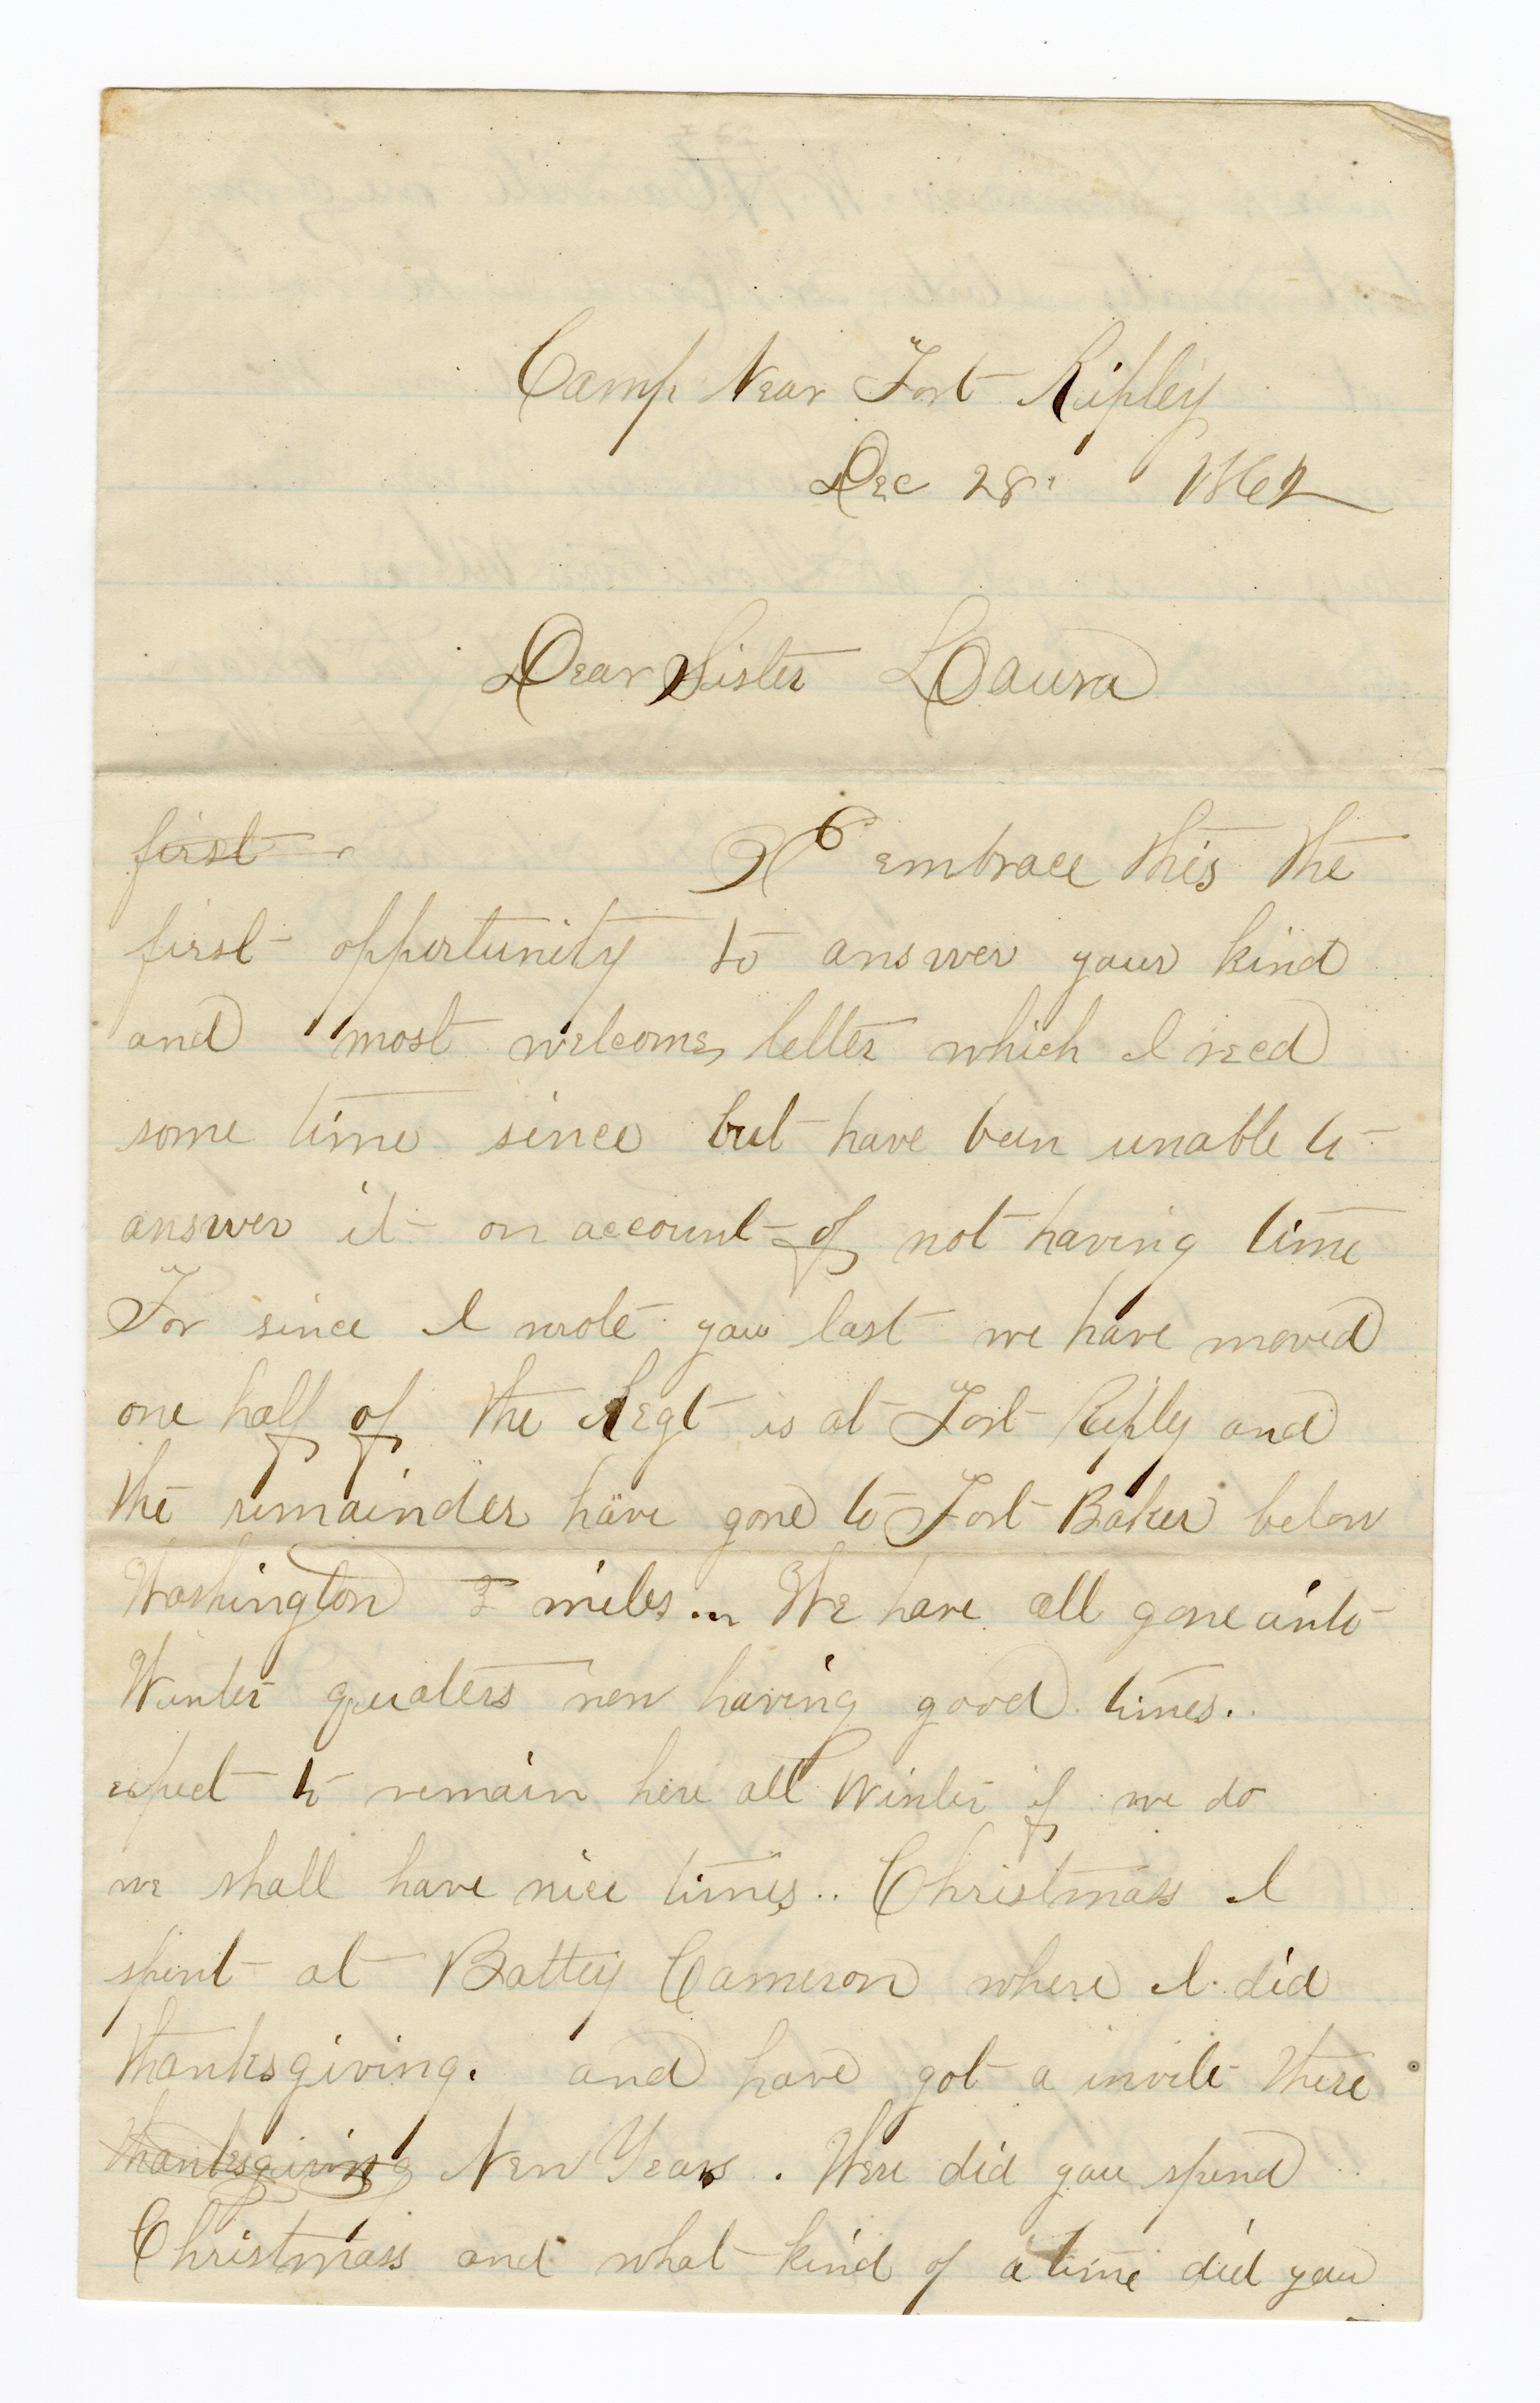 Camp Near Fort Ripley
Dec 28. 1862
Dear Sister Laura
first embrace this the
first oppertunity to answer your kind
and most welcome letter which I recd
some time since but have been unable to
answer it on account of not having time
For since I wrote you last we have moved
one half of the Regt is at Fort Riply and
the remainder have gone to Fort Baker below
Washington 3 miles... We have all gone into
Winter quaters now having good times..
expect to remain here all Winter if we do
we shall have nice times.. Christmass I
spent at Battey Cameron where I did
thanksgiving. and have got a invite there
thanksgiving New Years. Were did you spend
Christmass and what kind of a time did you